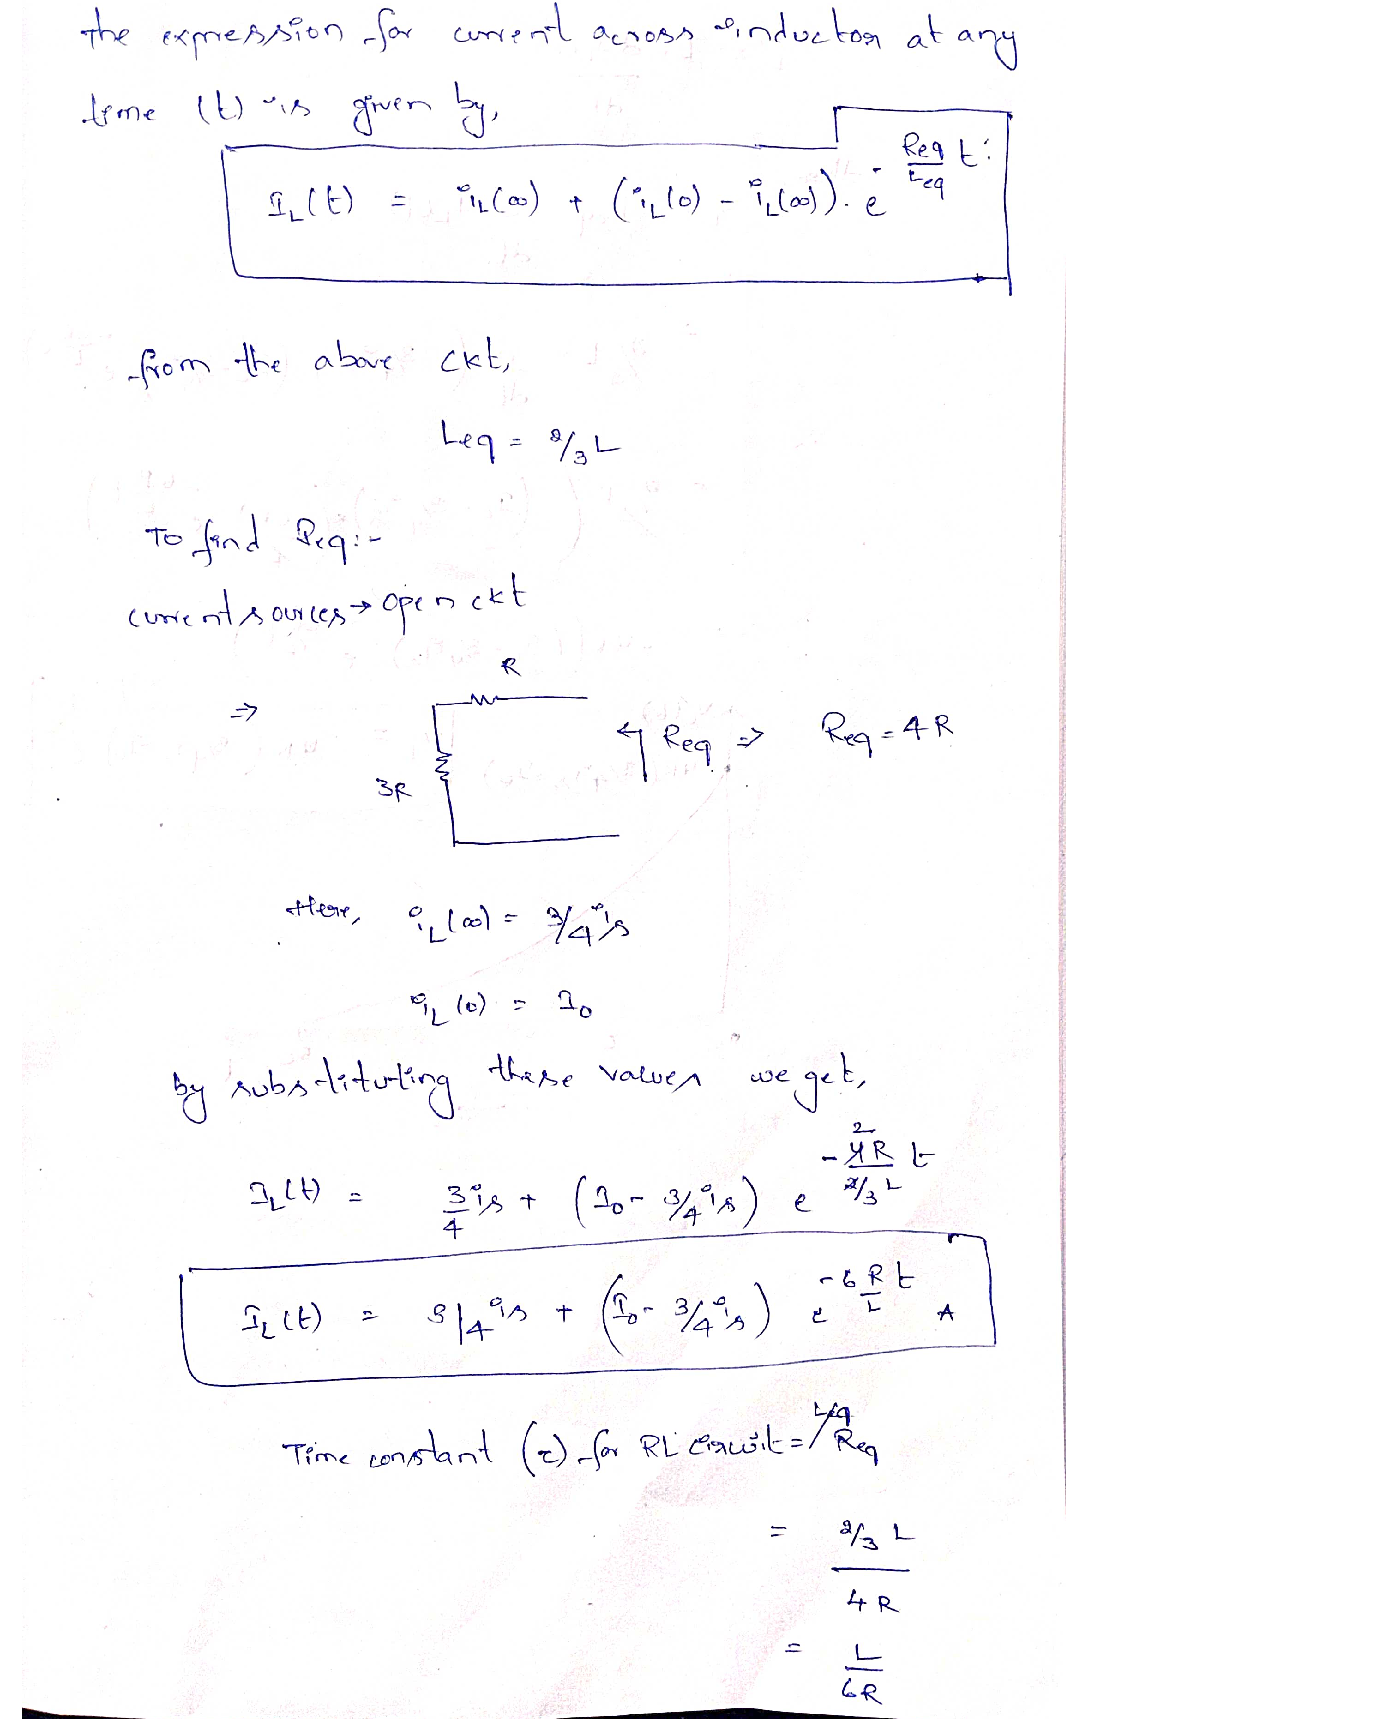 the expression for current across inductor at any
time (t) is given by,
I_L(t) = i_L(∞) + (i_L(0) - i_L(∞)). e^{- Req/Leq t}
from the above ckt,
Leq = 2/3 L
To find Req:-
current sources → open ckt
R
⇒ 3R Req ⇒ Req = 4R
Here, i_L(∞) = 3/4 is
i_L(0) = I0
by substituting these values we get,
I_L(t) = 3/4 is + (I0 - 3/4 is) e^{- 4R/(2/3 L) t}
I_L(t) = 3/4 is + (I0 - 3/4 is) e^{-6 R/L t} A
Time constant (τ) for RL circuit = Leq/Req
= 2/3 L / 4R
= L/6R